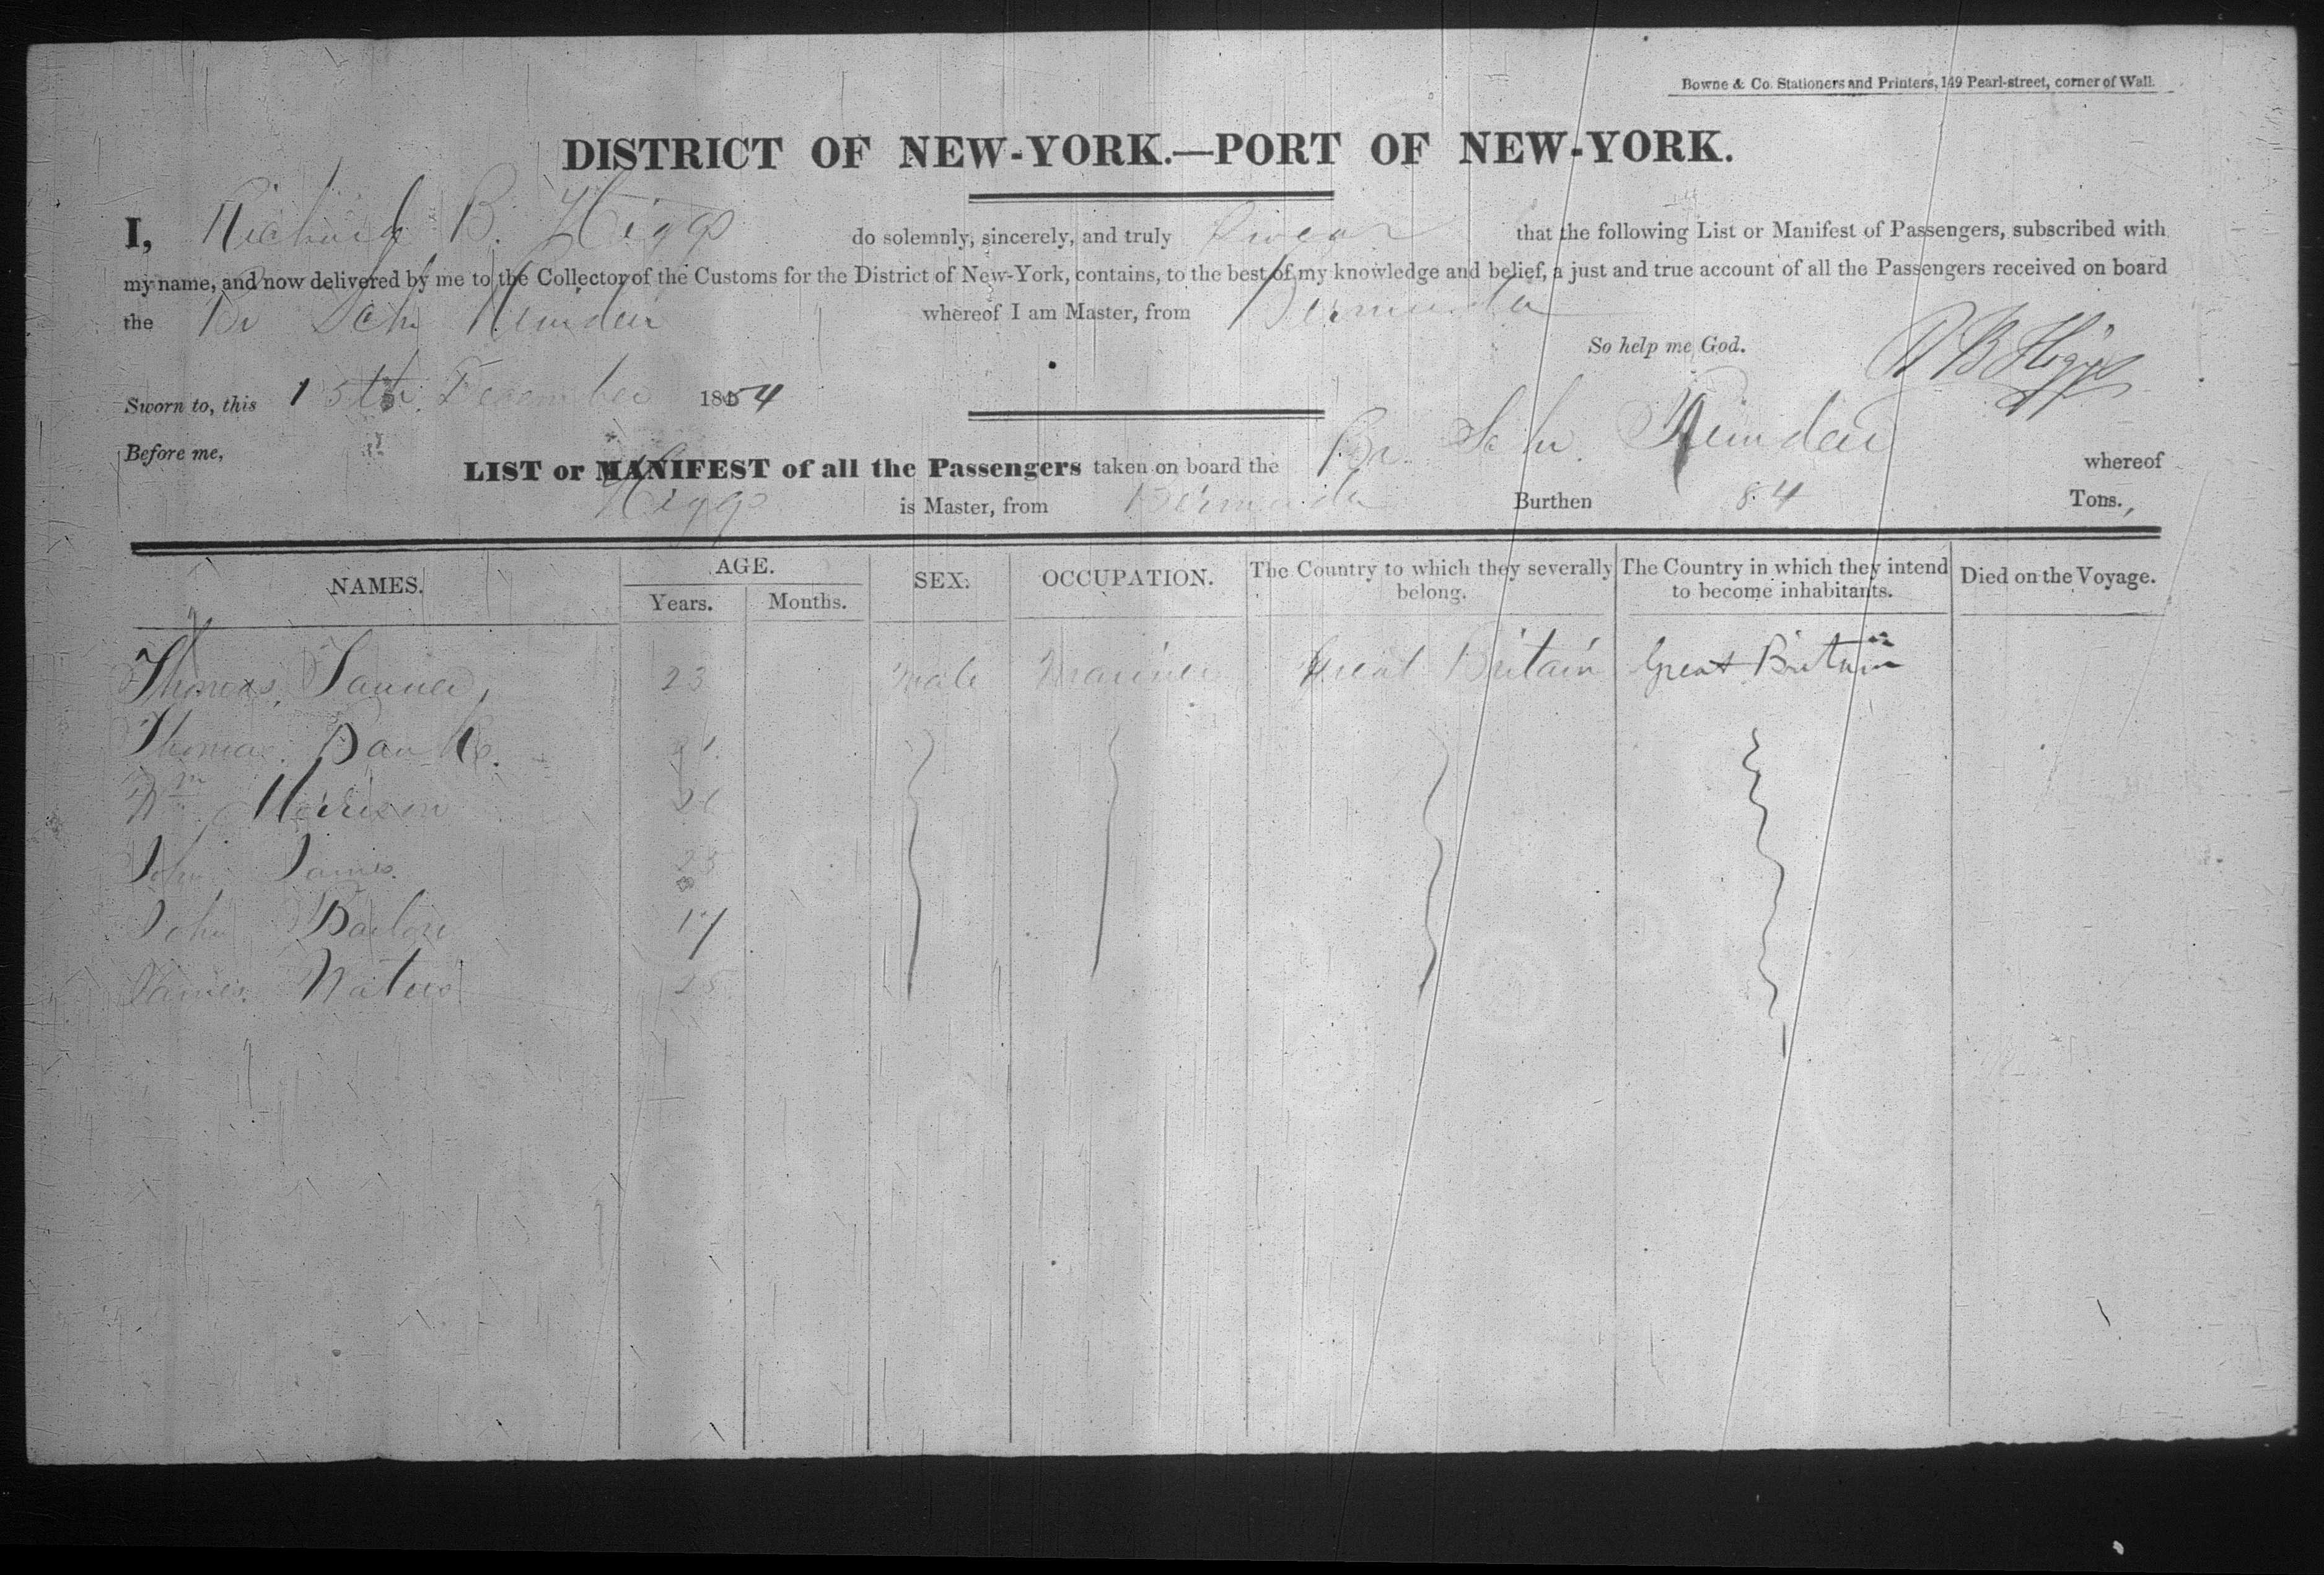 Bowne & Co. Stationers and Printers, 149 Pearl-street, corner of Wall.
DISTRICT OF NEW-YORK.—PORT OF NEW-YORK.
I, Richard B. Higgs do solemnly, sincerely, and truly Swear that the following List or Manifest of Passengers, subscribed with
my name, and now delivered by me to the Collector of the Customs for the District of New-York, contains, to the best of my knowledge and belief, a just and true account of all the Passengers received on board
the Br Schr whereof I am Master, from Bermuda
So help me God. R B Higgs
Sworn to, this 15th December 1854
Before me,
LIST or MANIFEST of all the Passengers taken on board the Br Schr. whereof
Higgs is Master, from Bermuda Burthen 84 Tons.,
NAMES. AGE. SEX. OCCUPATION. The Country to which they severally belong. The Country in which they intend to become inhabitants. Died on the Voyage.
Years. Months.
Thomas 23 Male Mariner Great Britain Great Britain
Thomas Banks.
Wm Morrison
John James. 23
John 17
James 25